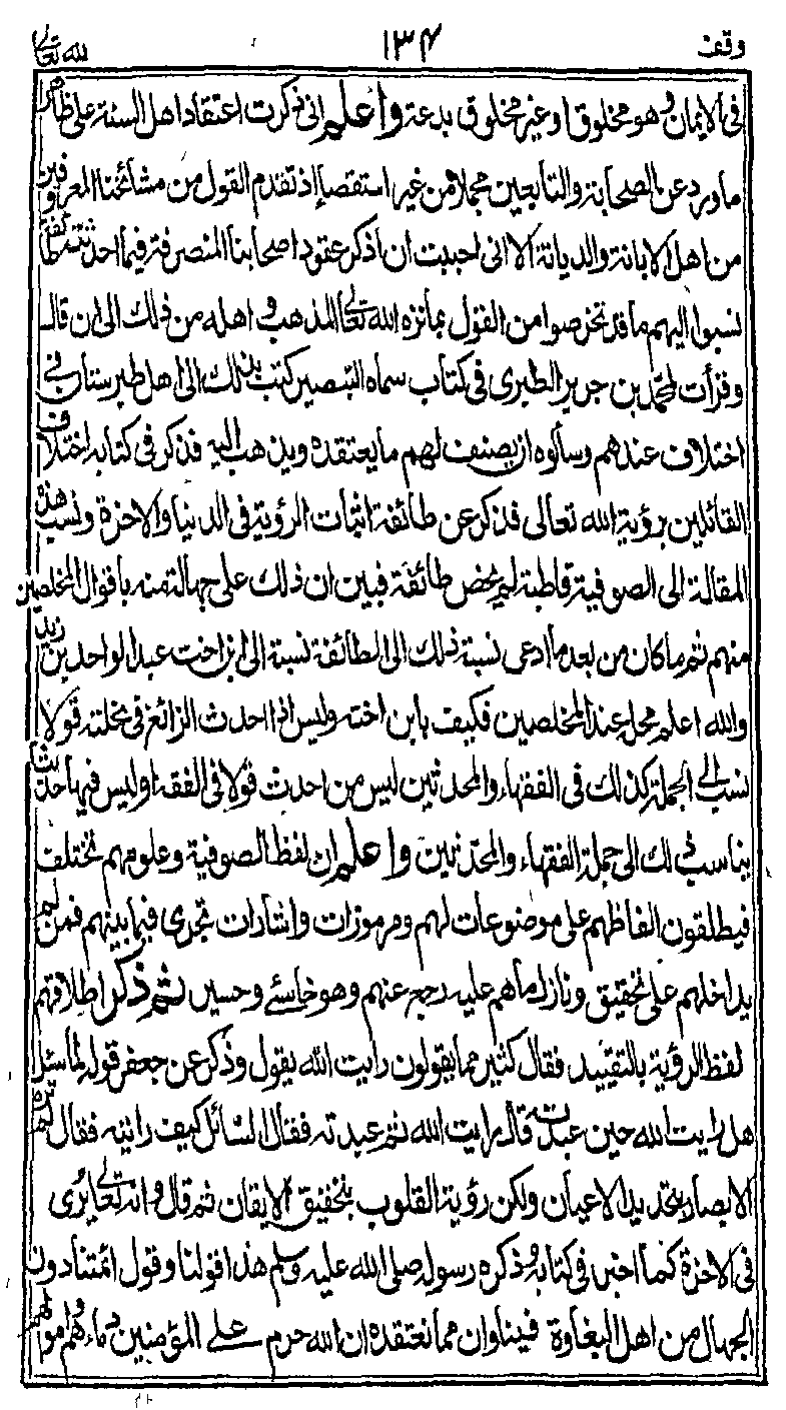 وقف ١٣٤ لله تعالى
في الايمان وهو مخلوق او غير مخلوق بدعة واعلم اني ذكرت اعتقاد اهل السنة على ظاهر
ما ورد عن الصحابة والتابعين مجملا من غير استقصاء اذ تقدم القول من مشائخنا المعروفين
من اهل الابانة والديانة الا اني احببت ان اذكر عقود اصحابنا المتصوفة فيما احدثته طائفة
نسبوا اليهم ما قد تخرصوا من القول بما نزه الله تعالى المذهب واهله من ذلك الى ان قال
وقرأت لمحمد بن جرير الطبري في كتاب سماه التبصير كتب بذلك الى اهل طبرستان في
اختلاف عندهم وسألوه ان يصنف لهم ما يعتقده ويذهب اليه فذكر في كتابه اختلاف
القائلين برؤية الله تعالى فذكر عن طائفة اثبات الرؤية في الدنيا والاخرة ونسب هذه
المقالة الى الصوفية قاطبة لم يخص طائفة فبين ان ذلك على جهالة منه باقوال المخلصين
منهم ثم ما كان من بعد ما ادعى نسبة ذلك الى الطائفة نسبة الى ابن اخت عبد الواحد بن زيد
والله اعلم محله عند المخلصين فكيف بابن اخته وليس اذا احدث الزائغ في نحلته قولا
نسب الى الجملة كذلك في الفقهاء والمحدثين ليس من احدث قولا في الفقه او ليس فيها حديثا
يناسب ذلك الى جملة الفقهاء والمحدثين واعلم ان لفظ الصوفية وعلومهم تختلف
فيطلقون الفاظهم على موضوعات لهم ومرموزات واشارات تجرى فيما بينهم فمن لم
يداخلهم على تحقيق ونازل ما هم عليه رجع عنهم وهو خاسئ وحسير ثم ذكر اطلاقهم
لفظ الرؤية بالتقييد فقال كثير مما يقولون رايت الله يقول وذكر عن جعفر قوله لما سئل
هل رايت الله حين عبدته قال رايت الله ثم عبدته فقال السائل كيف رايته فقال لم تره
الابصار بتحديد الاعيان ولكن رؤية القلوب بتحقيق الايقان ثم قال وانه تعالى يرى
في الاخرة كما اخبر في كتابه وذكره رسوله صلى الله عليه وسلم هذا قولنا وقول ائمتنا دون
الجهال من اهل الغباوة فينا وان مما نعتقده ان الله حرم على المؤمنين دماءهم واموالهم